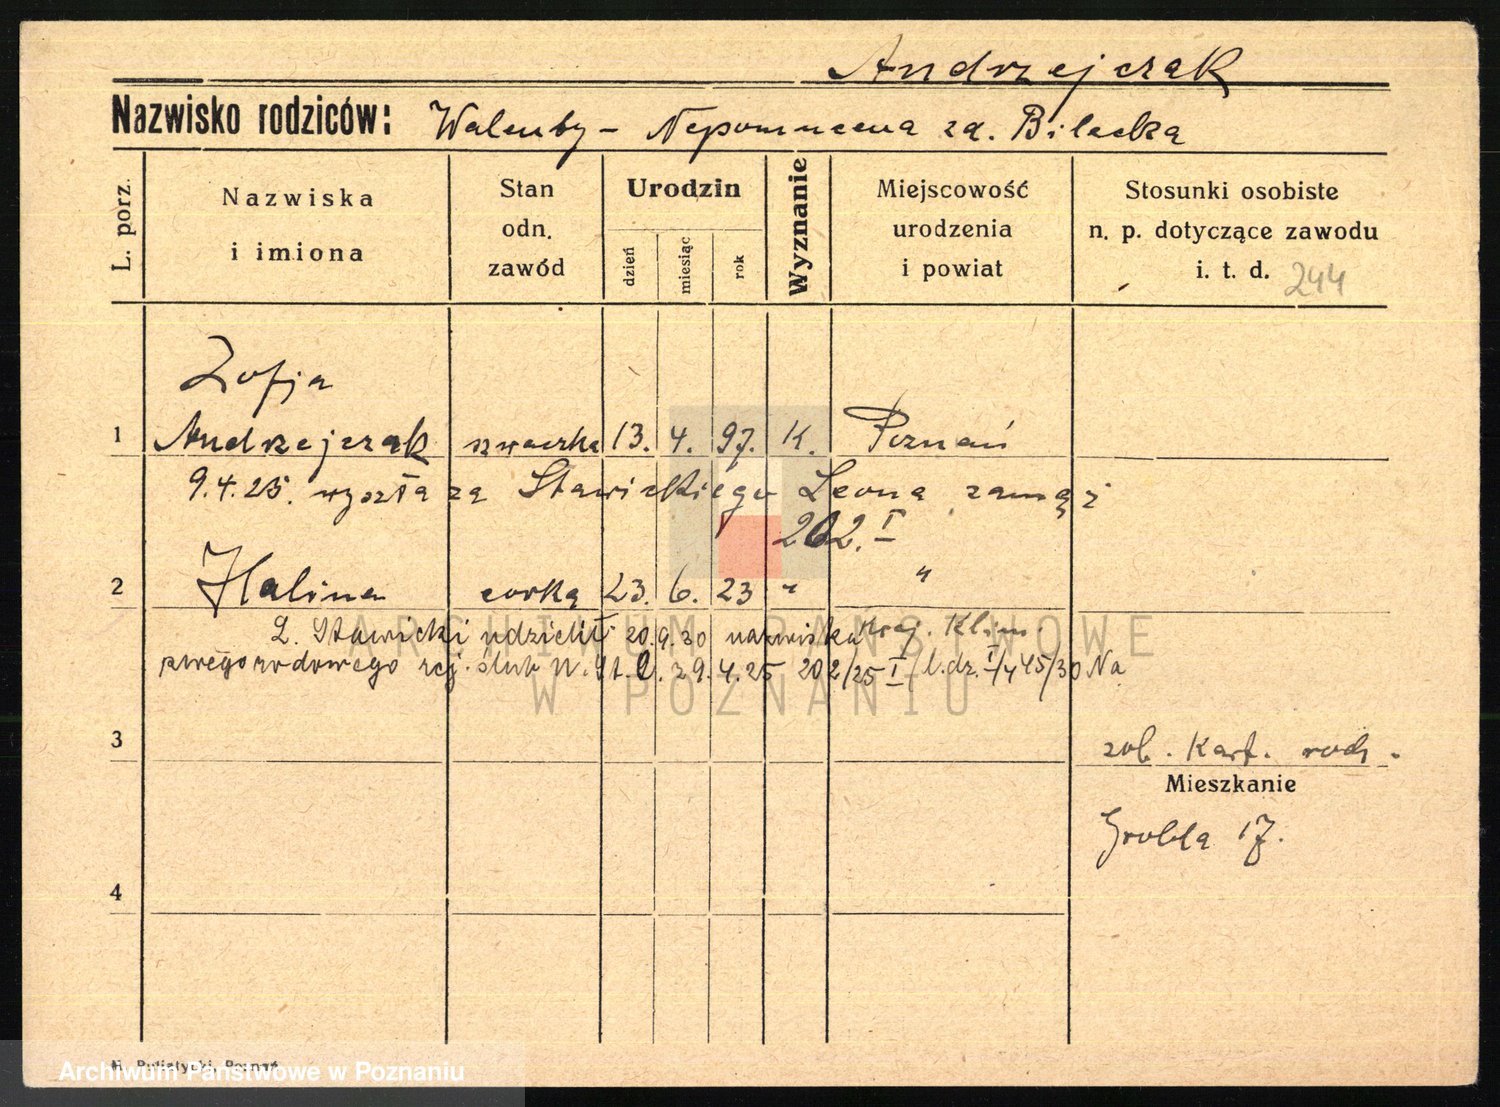 Andrzejczak
Nazwisko rodziców: Walenty - Nepomucena zd. Bilecka
L. porz.
Nazwiska
i imiona
Stan
odn.
zawód
Urodzin
dzień
miesiąc
rok
Wyznanie
Miejscowość
urodzenia
i powiat
Stosunki osobiste
n. p. dotyczące zawodu
i. t. d. 244
Zofja
1 Andrzejczak szwaczka 13. 4. 97. K. Poznań
9.4.25. wyszła za Stawickiego Leona zamąż
202. I
2 Halina córka 23. 6. 23 " "
L. Stawicki udzielił 20.9.30 nazwiska
swego rodowego rej. ślub 29.4.25 202/25 I l.dz. I/445/30 Na
3
zob. Kart. rodz.
Mieszkanie
Grobla 17.
4
ARCHIWUM PAŃSTWOWE
W POZNANIU
Archiwum Państwowe w Poznaniu